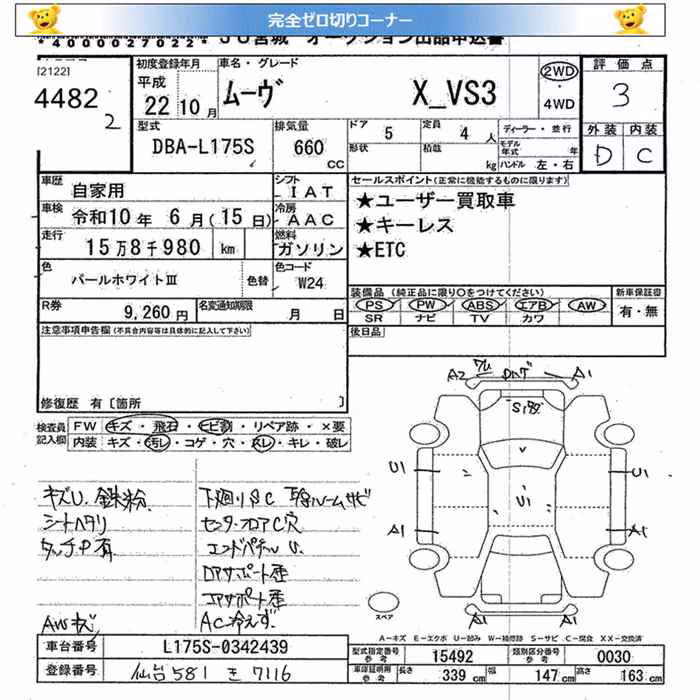 完全ゼロ切りコーナー
*4000027022* JU宮城 オークション出品申込書
[2122]
4482
2
初度登録年月
平成
22 10月
車名・グレード
ムーヴ X_VS3
2WD
・
4WD
評価点
3
外装 内装
D C
型式
DBA-L175S
排気量
660
CC
ドア 5
定員 4人
形状
積載 kg
ディーラー・並行
モデル年式 年
ハンドル 左・右
車歴
自家用
シフト
IAT
車検
令和10年 6月(15日)
冷房
AAC
走行
15万8千980 km
燃料
ガソリン
色
パールホワイトⅢ
色替
色コード
W24
R券
9,260円
名変通知期限
月 日
セールスポイント(正常に機能するものに限ります)
★ユーザー買取車
★キーレス
★ETC
装備品(純正品に限り〇をつけてください)
PS PW ABS エアB AW
SR ナビ TV カワ
新車保証書
有・無
後日品
注意事項申告欄(不具合内容等は具体的に記入して下さい)
修復歴 有〔箇所 〕
検査員記入欄
FW キズ・飛石・ヒビ割・リペア跡・×要
内装 キズ・汚レ・コゲ・穴・スレ・キレ・破レ
キズU. 鉄粉
シートヘタリ
タッチP有
AWキズ
下廻りSC
センターフロアC穴
エンドパネルU.
コアサポート歪
AC冷えず
A2 ワレ A1
S1
U1 U1 U1
A1 A1
A1 A1
スペア
A-キズ E-エクボ U-凹み W-補修跡 S-サビ C-腐食 XX-交換済
車台番号
L175S-0342439
登録番号
仙台 581 き 7116
型式指定番号
参考
15492
類別区分番号
参考
0030
車庫証明用
参考
長さ 339cm 幅 147cm 高さ 163cm